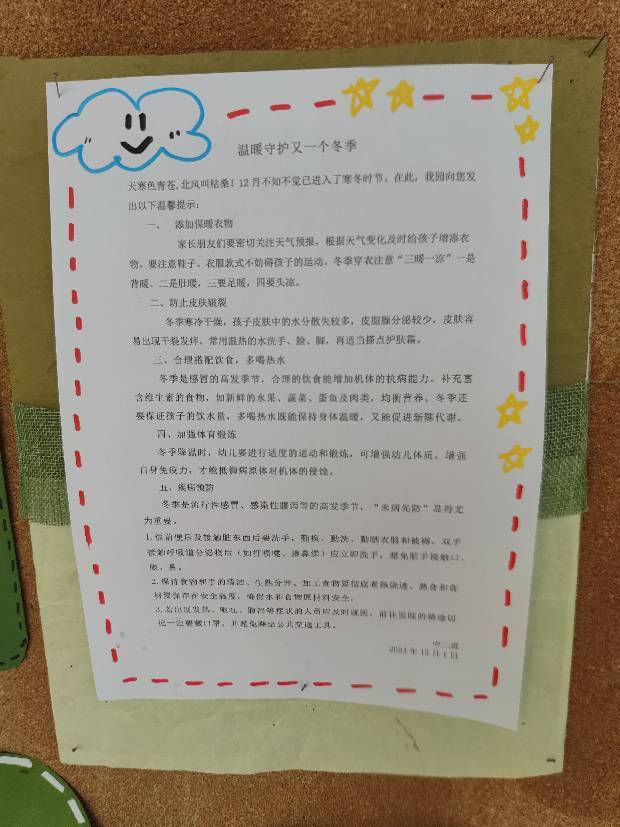 温暖守护又一个冬季
天寒色青苍,北风叫枯桑!12月不知不觉已进入了寒冬时节。在此,我园向您发
出以下温馨提示:
一、 添加保暖衣物
家长朋友们要密切关注天气预报,根据天气变化及时给孩子增添衣
物,要注意鞋子、衣服款式不妨碍孩子的运动。冬季穿衣注意“三暖一凉”一是
背暖、二是肚暖,三要足暖,四要头凉。
二、防止皮肤皲裂
冬季寒冷干燥,孩子皮肤中的水分散失较多,皮脂腺分泌较少,皮肤容
易出现干裂发痒,常用温热的水洗手、脸、脚,再适当搽点护肤霜。
三、合理搭配饮食,多喝热水
冬季是感冒的高发季节,合理的饮食能增加机体的抗病能力。补充富
含维生素的食物,如新鲜的水果、蔬菜、蛋鱼及肉类,均衡营养。冬季还
要保证孩子的饮水量,多喝热水既能保持身体温暖,又能促进新陈代谢。
四、加强体育锻炼
冬季降温时,幼儿要进行适度的运动和锻炼,可增强幼儿体质、增强
自身免疫力,才能抵御病原体对机体的侵蚀。
五、疾病预防
冬季是流行性感冒、感染性腹泻等的高发季节,“未病先防”显得尤
为重要。
1.饭前便后及接触脏东西后要洗手,勤换、勤洗、勤晒衣服和被褥,双手
接触呼吸道分泌物后(如打喷嚏、擤鼻涕)应立即洗手,避免脏手接触口、
眼、鼻。
2.保持食物和手的清洁、生熟分开。加工食物要彻底煮熟烧透、熟食和食
材要保存在安全温度,确保水和食物原材料安全。
3.若出现发热、呕吐、腹泻等症状的人员应及时就医,前往医院的路途切
记一定要戴口罩,并避免乘坐公共交通工具。
中二班
2023年12月1日